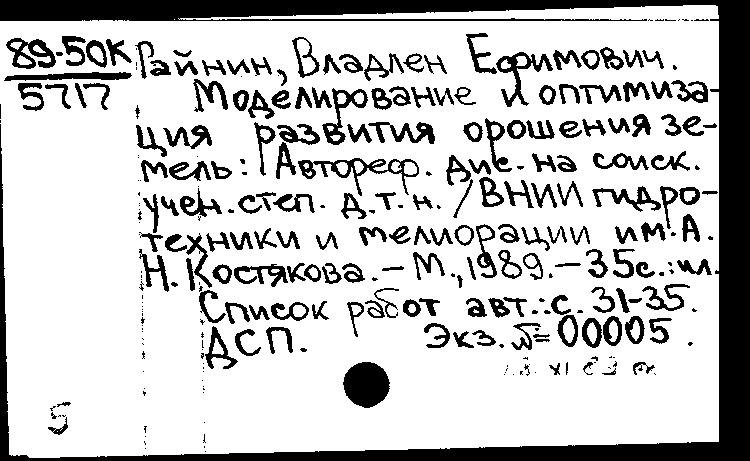 89-50К
5717
Райнин, Владлен Ефимович.
Моделирование и оптимиза-
ция развития орошения зе-
мель: Автореф. дис. на соиск.
учен. степ. д.т.н. / ВНИИ гидро-
техники и мелиорации им. А.
Н. Костякова. – М., 1989. – 35с.: ил.
Список работ авт.: с. 31-35.
ДСП. Экз. №=00005.
5